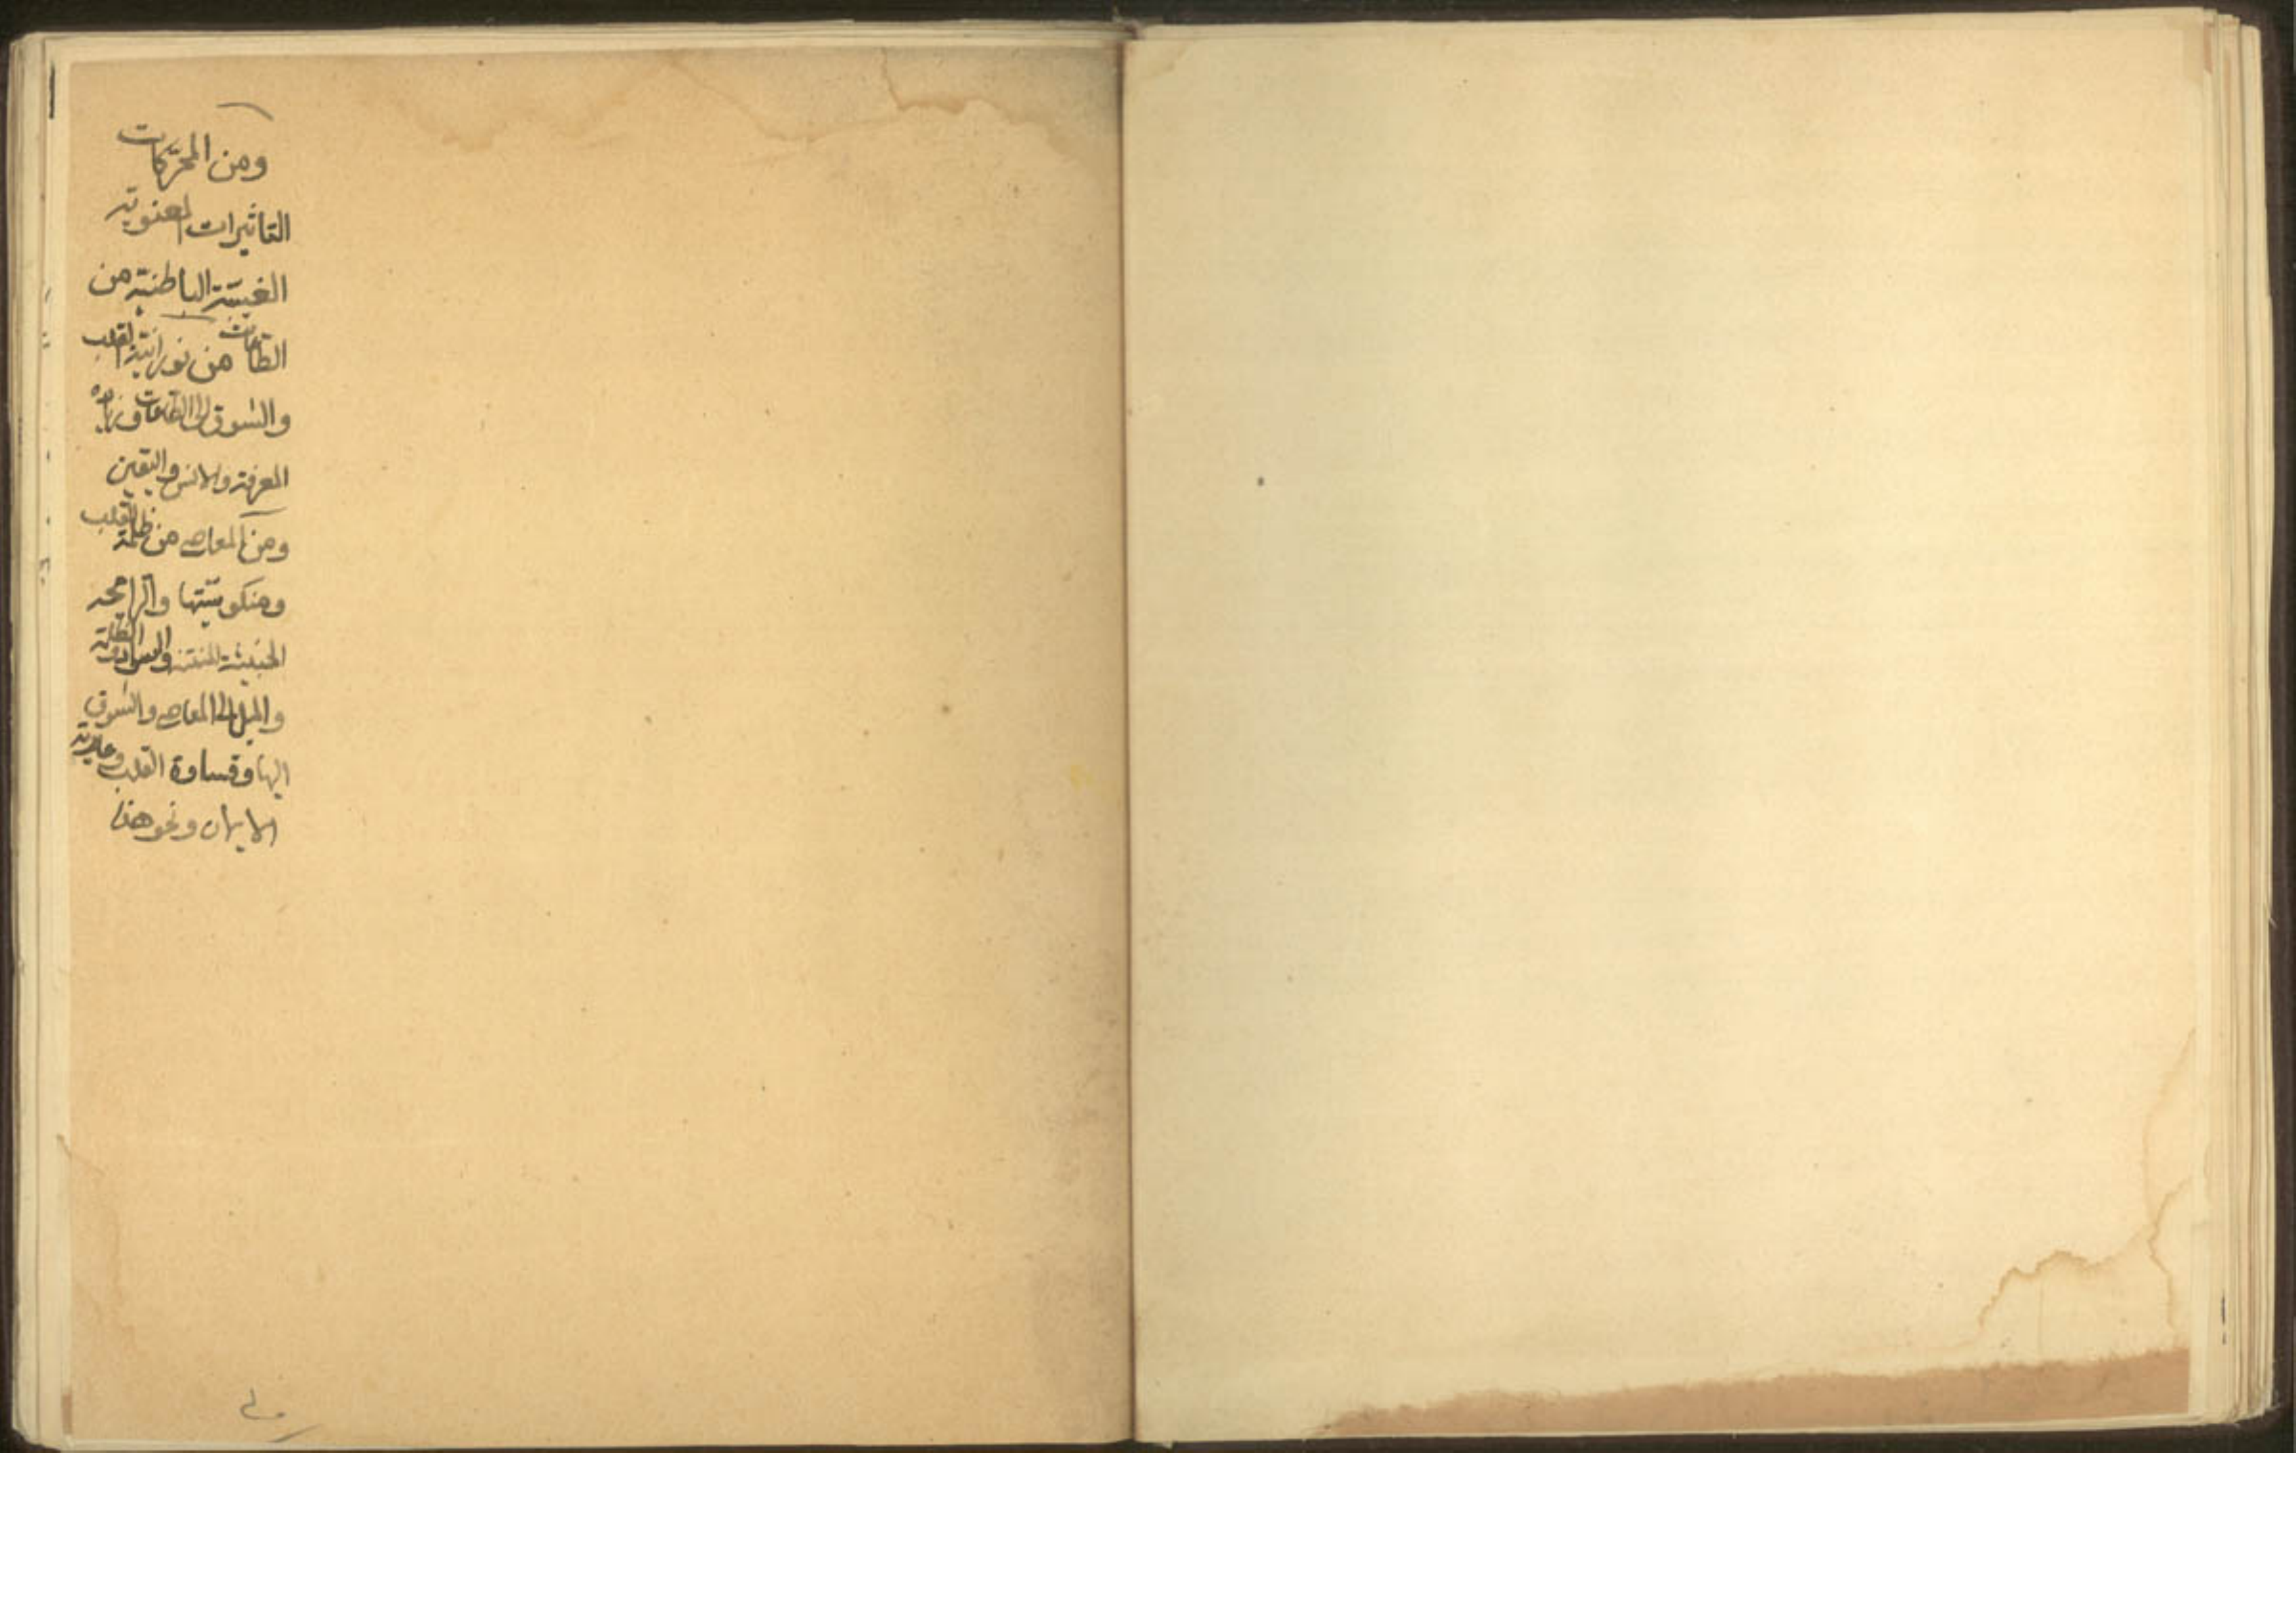 ومن المحرّكات
التاثيرات المعنويّة
الغيبيّة الباطنية من
الطاعات من نورانيّة القلب
والشوق الى الطاعات و زيادة
المعرفة والانس واليقين
ومن المعاصي من ظلمة القلب
ومنكوسيّتها والرايحة
الخبيثة المنتنة
والميل الى المعاصي والشوق
اليها وقساوة القلب وعارية
الايمان ونحو هذا